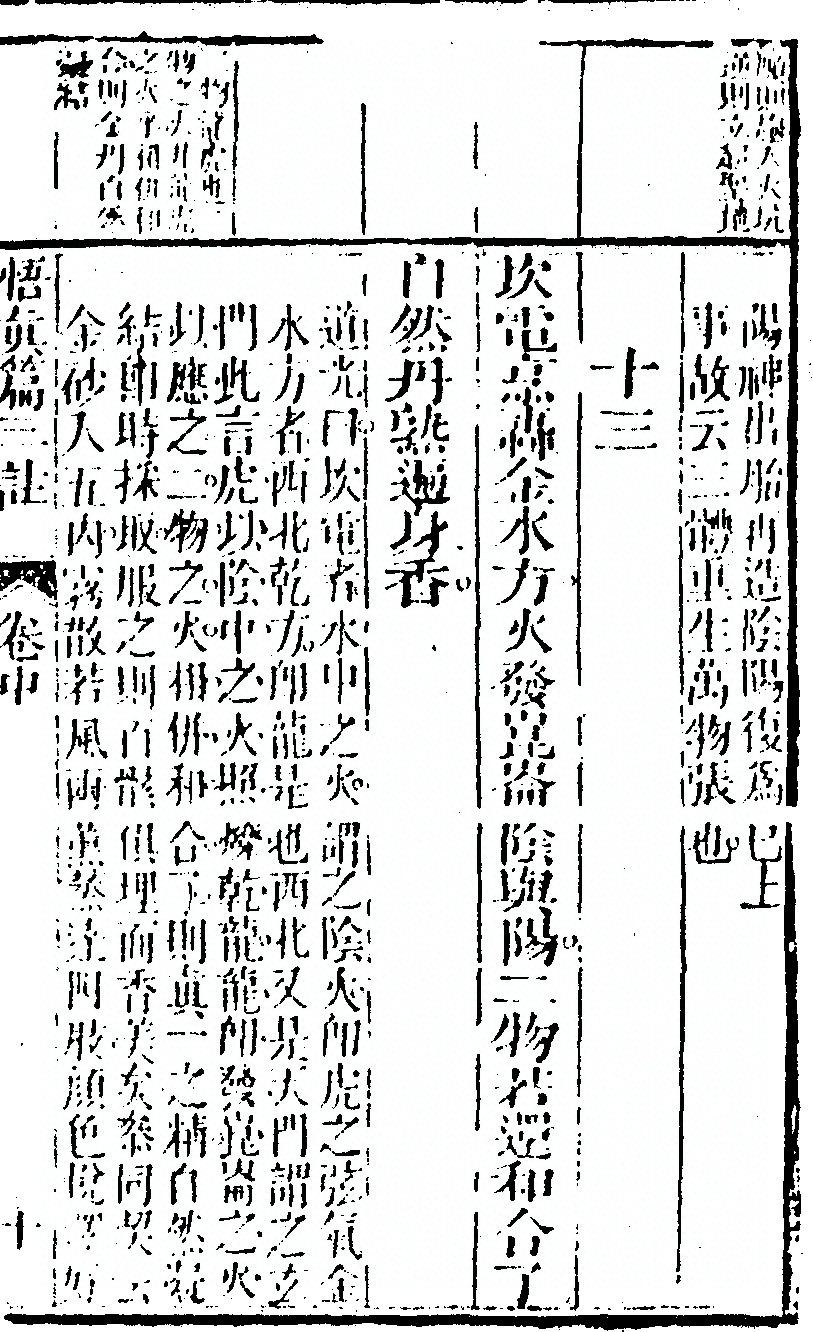 陽神出胎再造陰陽復爲已上
事故云三體重生萬物張也
十三
坎電烹轟金水方火發崑崙陰與陽二物若還和合了
自然丹熟遍身香
道光曰坎電者水中之火謂之陰火卽虎之弦氣金
水方者西北乾方卽龍是也西北又是天門謂之玄
門此言虎以陰中之火照爍乾龍龍卽發崑崙之火
以應之二物之火相併和合了則真一之精自然凝
結卽時採取服之則百骸俱理而香美矣參同契云
金砂入五內霧散若風雨薰蒸達四肢顏色悅澤好
悟真篇三註 卷中 十
物謂虎也
物之大丹龍虎
之火
合則金丹自然
凝結